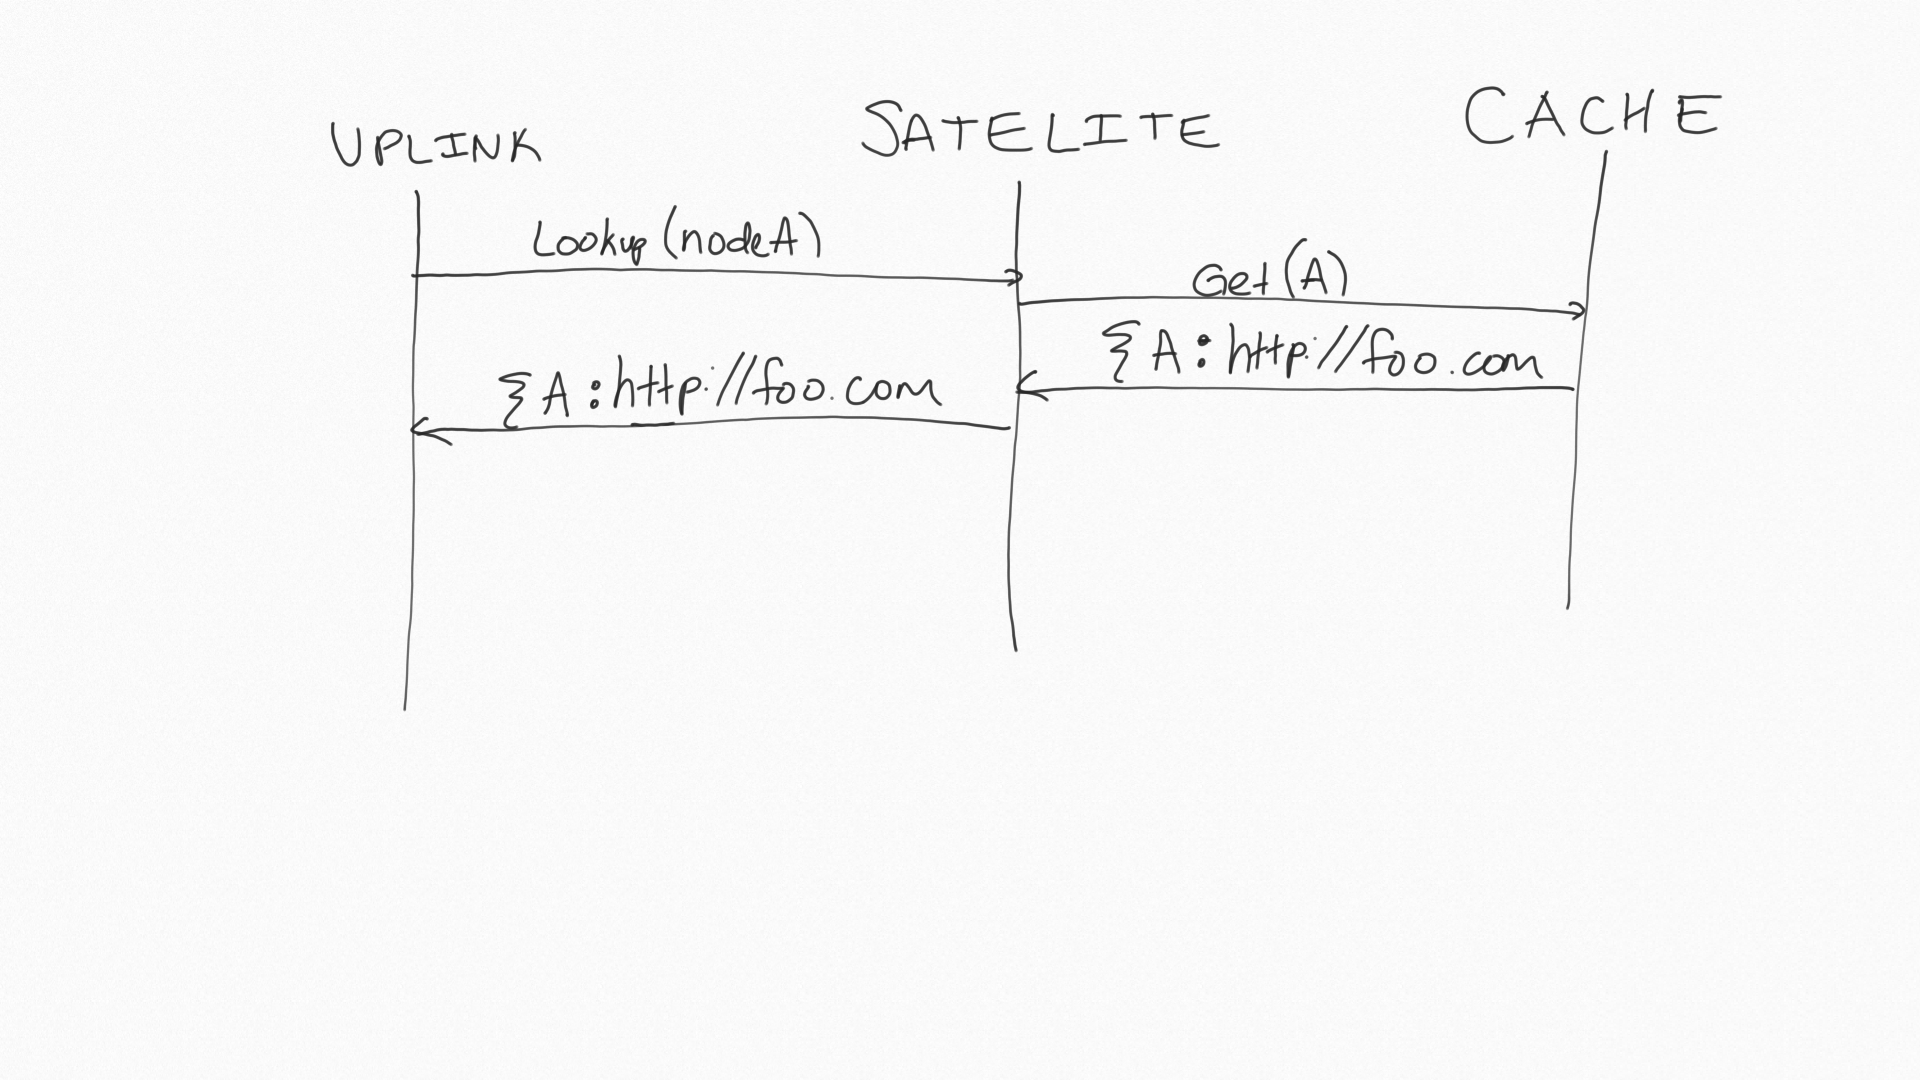 UPLINK
SATELITE
CACHE
Lookup (nodeA)
Get (A)
{ A : http://foo.com
{ A : http://foo.com